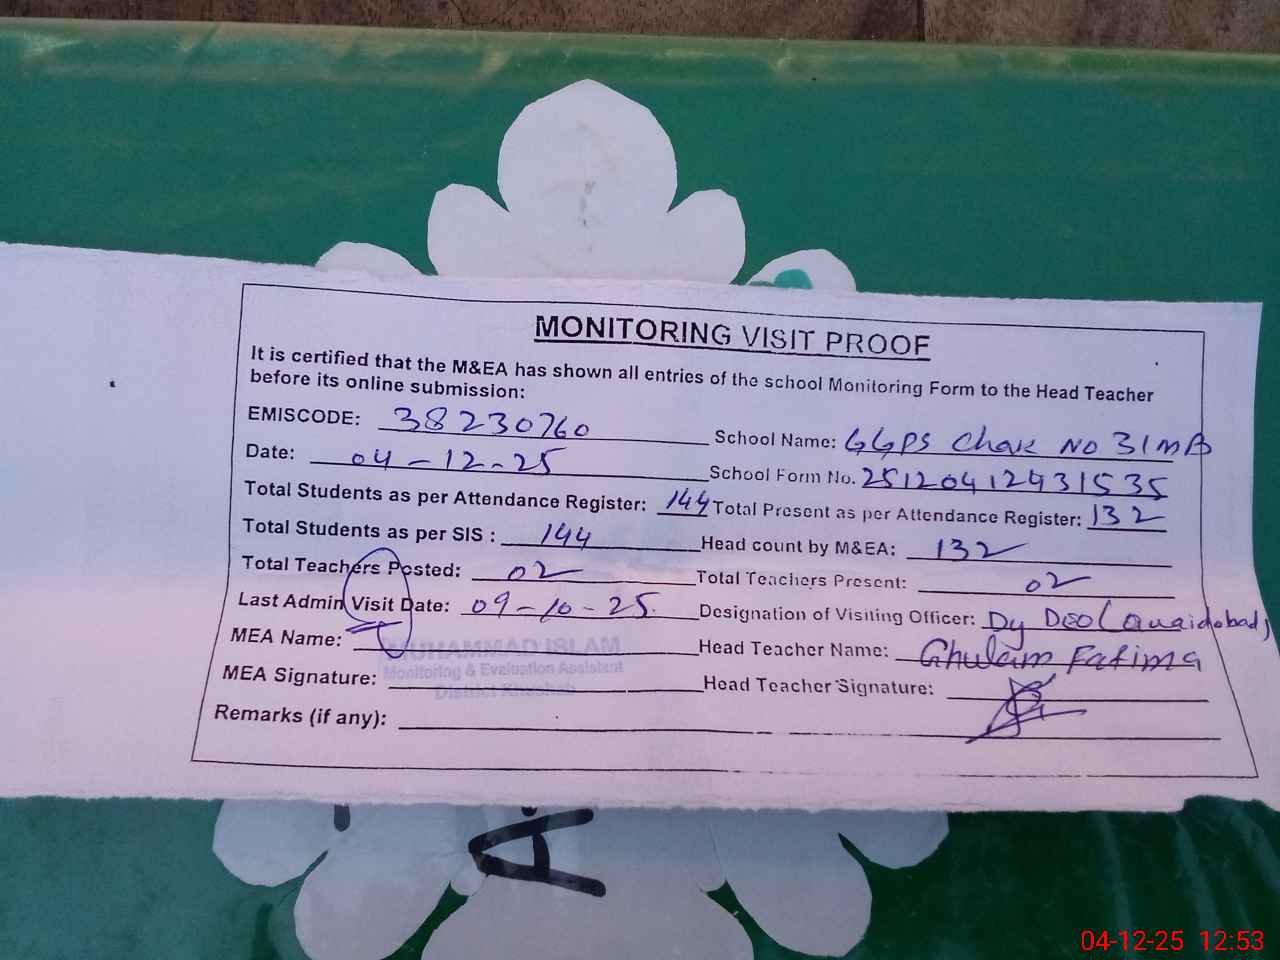 MONITORING VISIT PROOF
It is certified that the M&EA has shown all entries of the school Monitoring Form to the Head Teacher
before its online submission:
EMISCODE: 38230760 School Name: GGPS Chak No 31MB
Date: 04-12-25 School Form No. 251204124931535
Total Students as per Attendance Register: 144 Total Present as per Attendance Register: 132
Total Students as per SIS : 144 Head count by M&EA: 132
Total Teachers Posted: 02 Total Teachers Present: 02
Last Admin Visit Date: 09-10-25. Designation of Visiting Officer: Dy DEO Quaidabad
MEA Name: MUHAMMAD ISLAM Head Teacher Name: Ghulam Fatima
Monitoring & Evaluation Assistant
MEA Signature: District Khushab Head Teacher Signature:
Remarks (if any):
A.
04-12-25 12:53